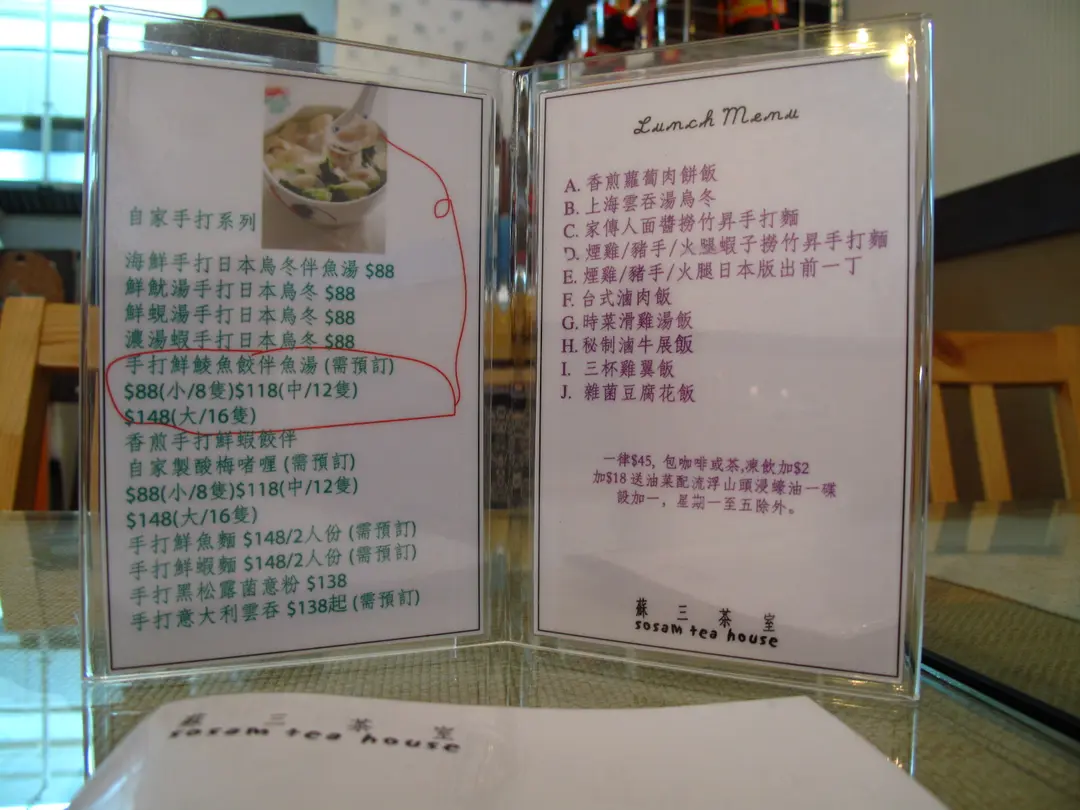 自家手打系列
海鮮手打日本烏冬伴魚湯 $88
鮮魷湯手打日本烏冬 $88
鮮蜆湯手打日本烏冬 $88
濃湯蝦手打日本烏冬 $88
手打鮮鯪魚餃伴魚湯 (需預訂)
$88(小/8隻)$118(中/12隻)
$148(大/16隻)
香煎手打鮮蝦餃伴
自家製酸梅啫喱 (需預訂)
$88(小/8隻)$118(中/12隻)
$148(大/16隻)
手打鮮魚麵 $148/2人份 (需預訂)
手打鮮蝦麵 $148/2人份 (需預訂)
手打黑松露菌意粉 $138
手打意大利雲吞 $138起 (需預訂)
Lunch Menu
A. 香煎蘿蔔肉餅飯
B. 上海雲吞湯烏冬
C. 家傳人面醬撈竹昇手打麵
D. 煙雞/豬手/火腿蝦子撈竹昇手打麵
E. 煙雞/豬手/火腿日本版出前一丁
F. 台式滷肉飯
G. 時菜滑雞湯飯
H. 秘制滷牛展飯
I. 三杯雞翼飯
J. 雜菌豆腐花飯
一律$45, 包咖啡或茶,凍飲加$2
加$18 送油菜配流浮山頭浸蠔油一碟
設加一，星期一至五除外。
蘇三茶室
sosam tea house
蘇三茶室
sosam tea house